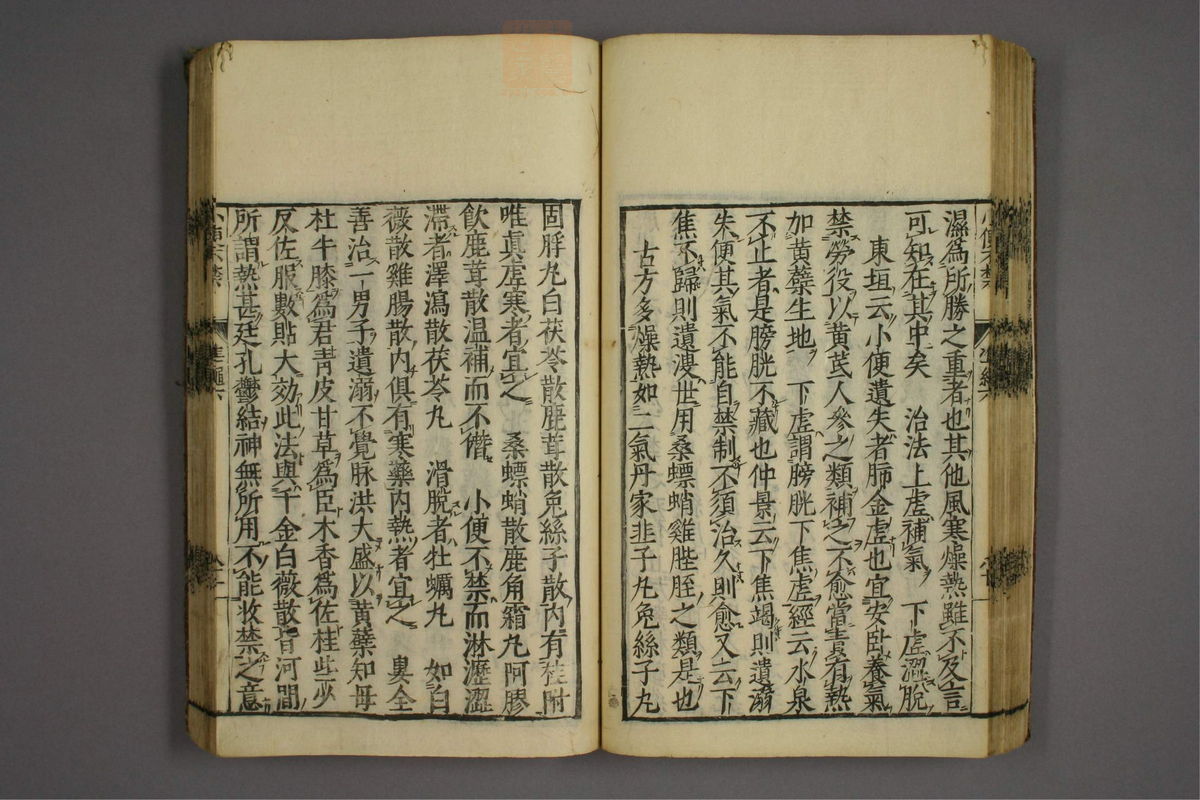 濕爲所勝之重者也其他風寒燥熱雖不及言
可知在其中矣　治法上虚補氣　下虚澀脫
東垣云小便遺失者肺金虚也宜安卧養氣
禁勞役以黄芪人參之類補之不愈當責有熱
加黄蘗生地　下虚謂膀胱下焦虚經云水泉
不止者是膀胱不藏也仲景云下焦竭則遺溺
失便其氣不能自禁制不須治久則愈又云下
焦不歸則遺溲世用桑螵蛸雞膍胵之類是也
古方多燥熱如二氣丹家韭子丸兔絲子丸
固脬丸白茯苓散鹿茸散兔絲子散内有桂附
唯眞虚寒者宜之　桑螵蛸散鹿角霜丸阿膠
飲鹿茸散温補而不僭　小便不禁而淋瀝澀
滯者澤瀉散茯苓丸　滑脫者牡蠣丸　如白
薇散雞腸散内俱有寒藥内熱者宜之　婁全
善治一男子遺溺不覺脉洪大盛以黄蘗知母
杜牛膝爲君靑皮甘草爲臣木香爲佐桂些少
反佐服數貼大効此法與千金白薇散皆河間
所謂熱甚廷孔鬱結神無所用不能收禁之意